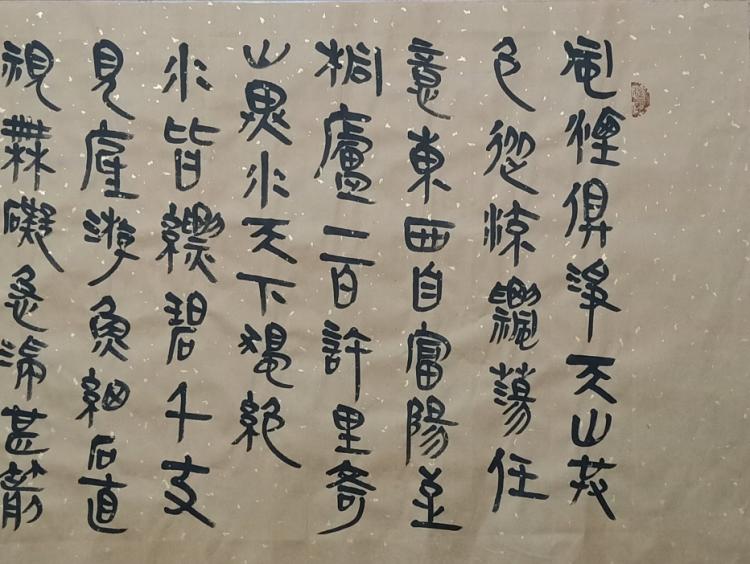 風煙俱淨天山共
色從流飄蕩任
意東西自富陽至
桐廬一百許里奇
山異水天下獨絕
水皆縹碧千丈
見底游魚細石直
視無礙急湍甚箭